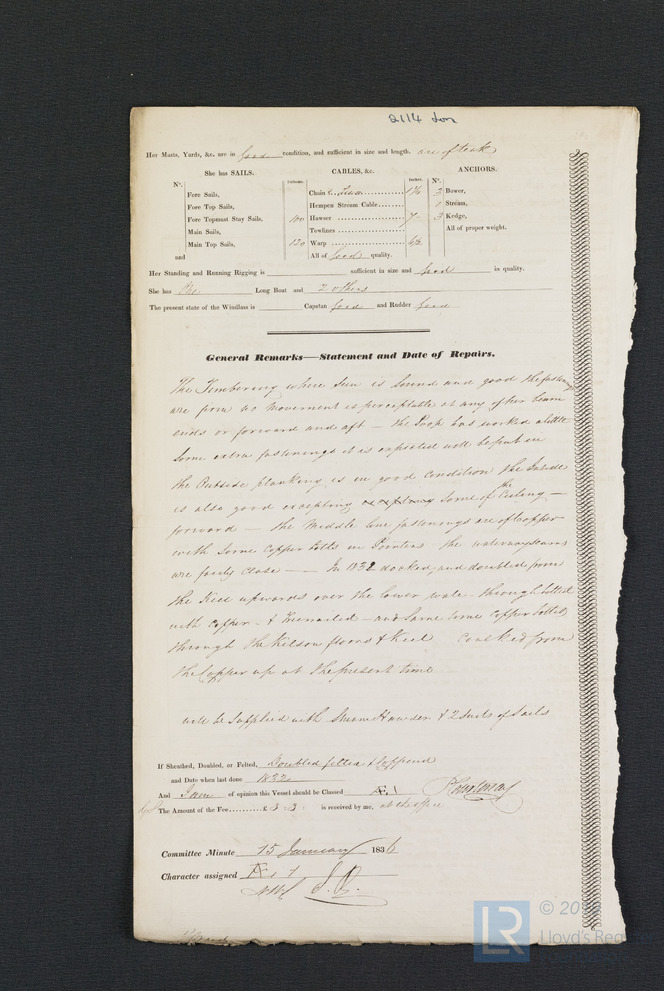 2114 Lon
Her Masts, Yards, &c. are in Good condition, and sufficient in size and length. are of teak
She has SAILS. CABLES, &c. ANCHORS.
N°. Fathoms. Inches. N°.
Fore Sails, Chain 1⅝ 3 Bower,
Fore Top Sails, Hempen Stream Cable 1 Stream,
Fore Topmast Stay Sails, 100 Hawser 7 3 Kedge,
Main Sails, Towlines All of proper weight.
Main Top Sails, 120 Warp
and All of Good quality.
Her Standing and Running Rigging is sufficient in size and Good in quality.
She has One Long Boat and 2 others
The present state of the Windlass is Capstan Good and Rudder Good
General Remarks—Statement and Date of Repairs.
The Timbering where seen is Sound and good the fastenings
are firm no movement is perceptable at any of her beam
ends or forward and aft – the Poop has worked a little
Some extra fastenings it is expected will be put in
the Outside planking is in good condition the Inside
is also good excepting some of the Ceiling –
forward – the Middle line fastenings are of Copper
with some Copper bolts in Pointers the waterway seams
are fairly close – In 1832 docked and doubled from
the Keel upwards over the lower wale – through bolted
with Copper – & Treenailed – and some Copper bolts
through the Kelson floors & Keel Caulked from
the Copper up at the present time
will be Supplied with Stream Hawser & 2 Suits of Sails
If Sheathed, Doubled, or Felted, Doubled felted & Coppered
and Date when last done 1832
And I am of opinion this Vessel should be Classed Æ.1
The Amount of the Fee £ 3 : 3 : is received by me, at the office
Committee Minute 15 January 1836
Character assigned Æ 1
© 20
Lloyd's Reg
LR